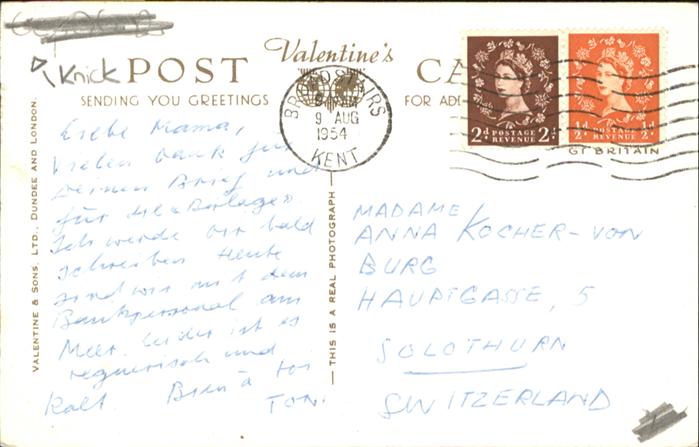 Knick
POST CA
Valentine's
SENDING YOU GREETINGS FOR
BROADSTAIRS
9 AUG
1954
KENT
2d POSTAGE REVENUE 2d
½d POSTAGE REVENUE ½d
GT BRITAIN
VALENTINE & SONS, LTD., DUNDEE AND LONDON.
THIS IS A REAL PHOTOGRAPH
Liebe Mama,
Vielen Dank für
Deinen Brief und
für die «Beilage».
Ich werde Dir bald
schreiben. Heute
sind wir mit dem
Bankpersonal am
Meer. Leider ist es
regnerisch und
kalt. Bien à toi
TONI
MADAME
ANNA KOCHER-VON
BURG
HAUPTGASSE, 5
SOLOTHURN
SWITZERLAND